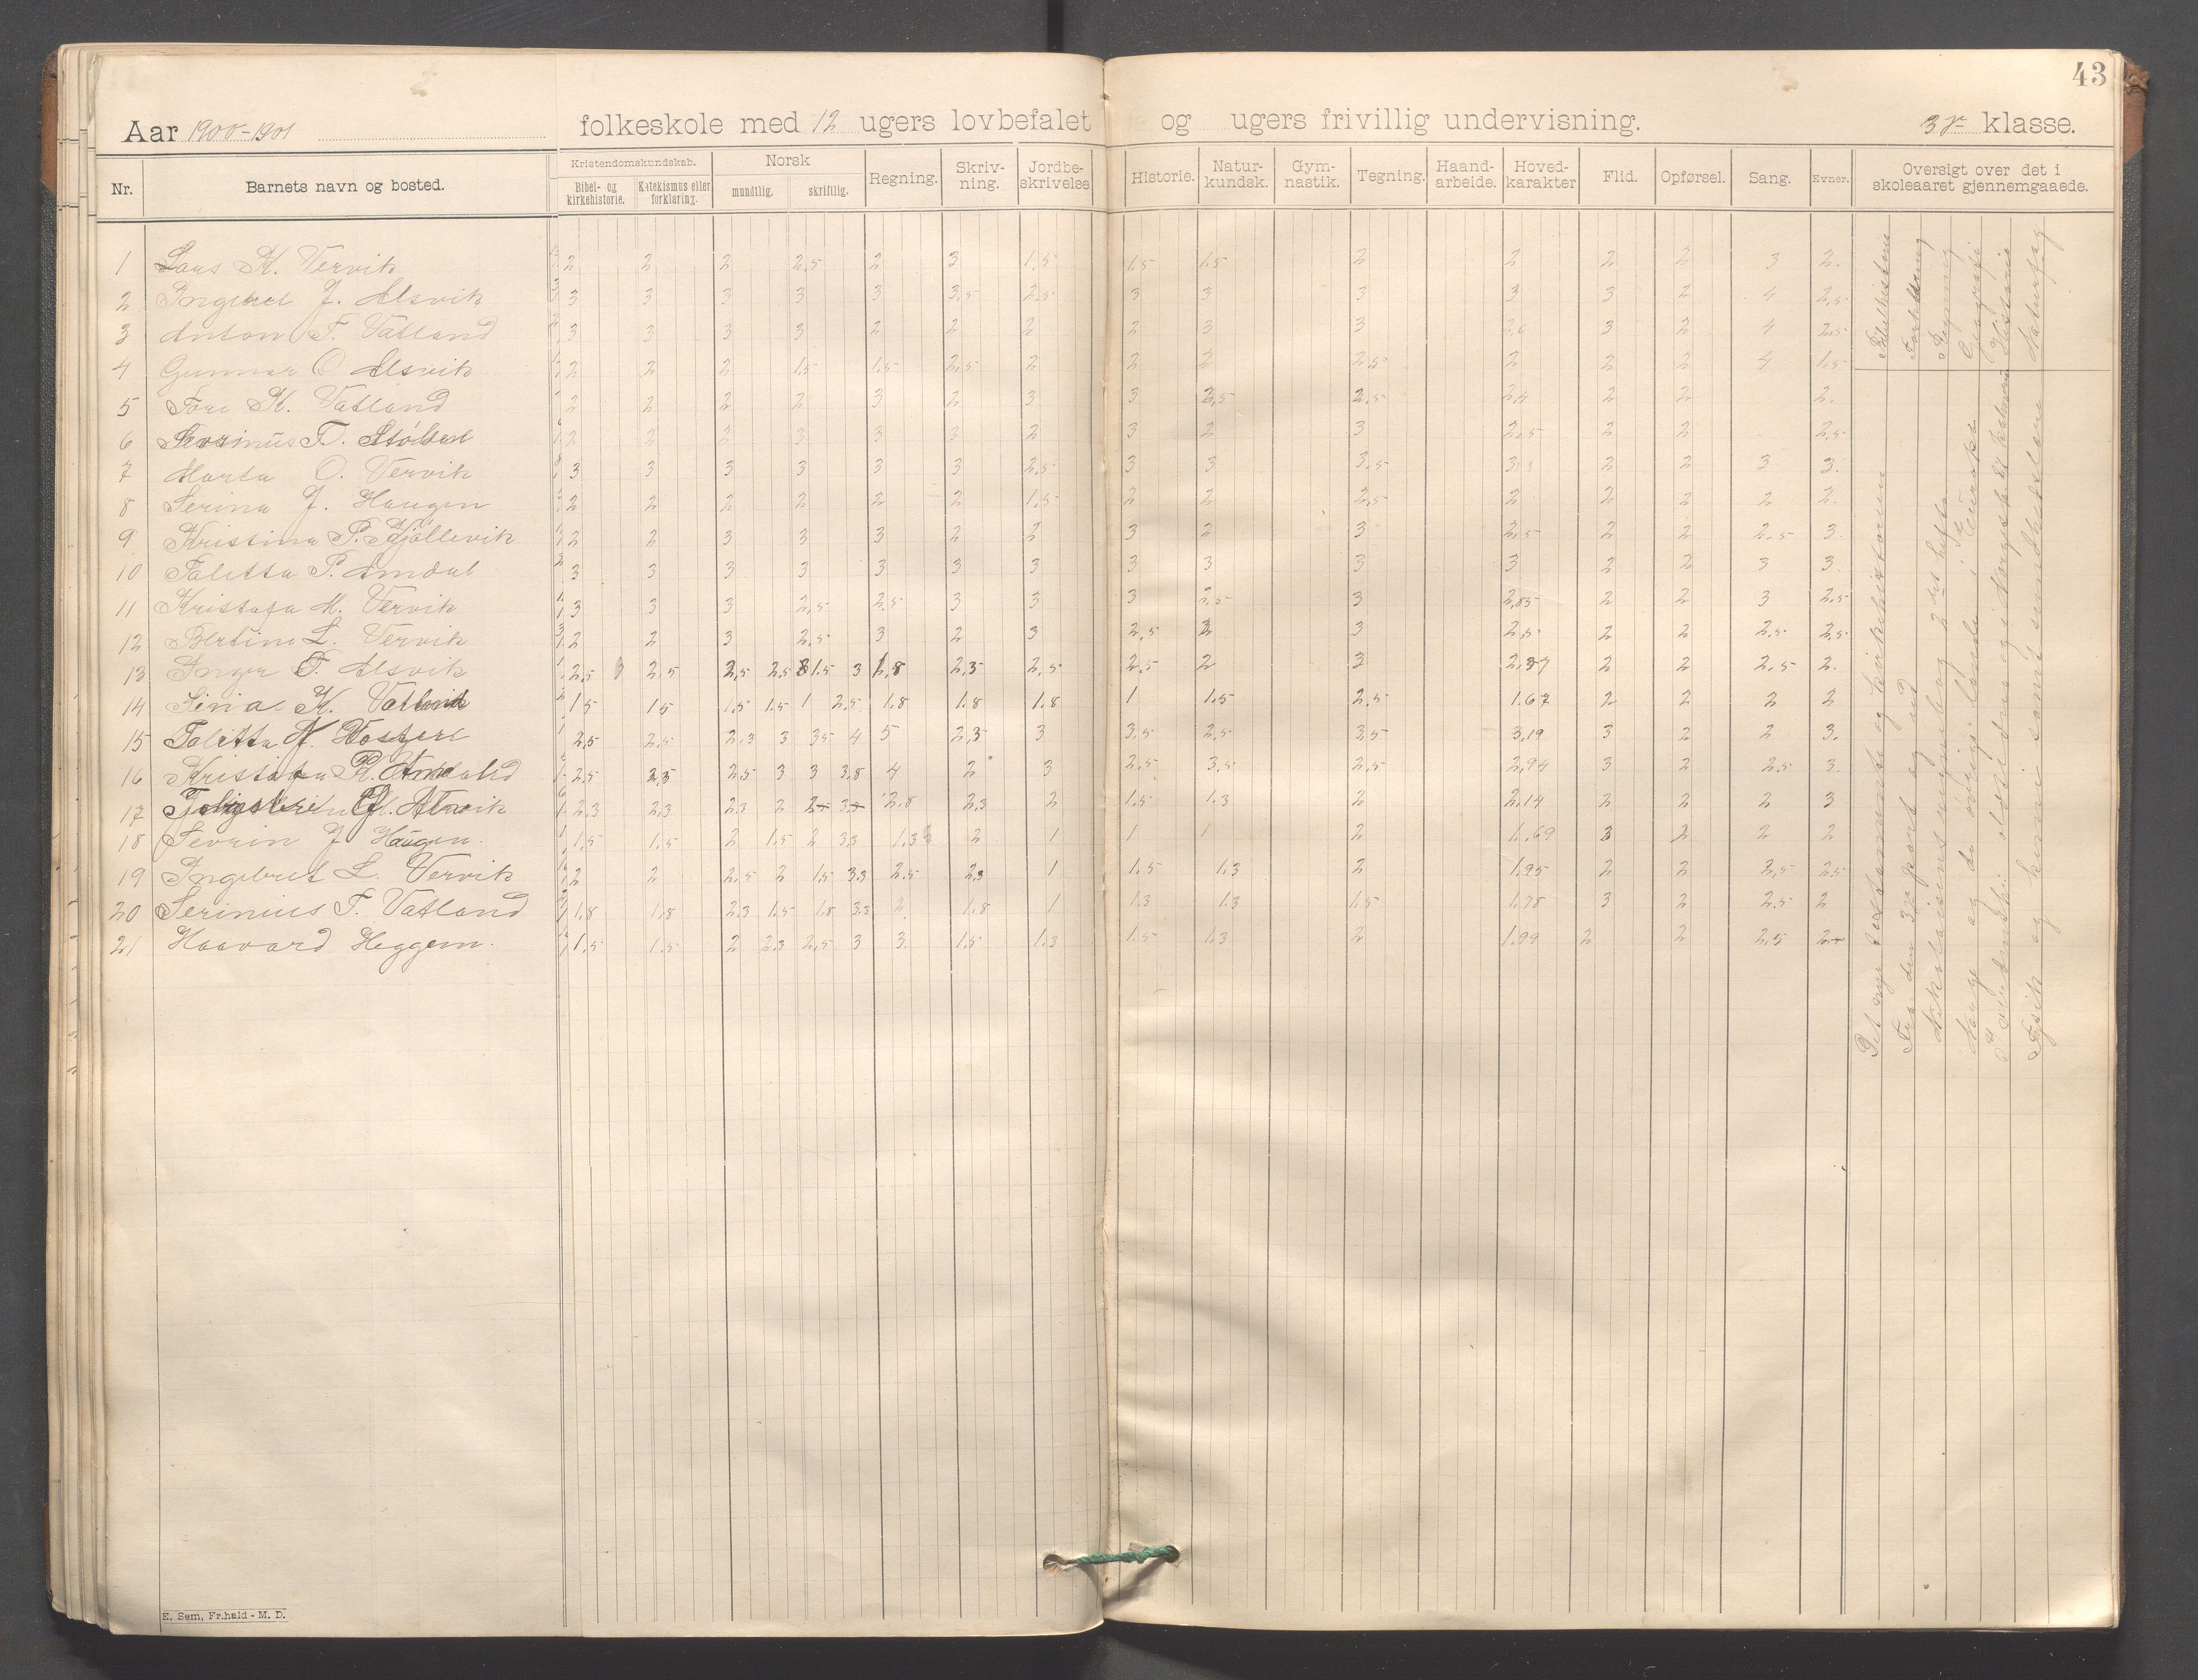 43
Aar 1900-1901 folkeskole med 12 ugers lovbefalet og ugers frivillig undervisning. 3dje klasse.
Nr. Barnets navn og bosted. Kristendomskundskab. Norsk Regning. Skriv-ning. Jordbe-skrivelse Historie. Natur-kundsk. Gym-nastik. Tegning. Haand-arbeide. Hoved-karakter Flid. Opførsel. Sang. Evner. Oversigt over det i skoleaaret gjennemgaaede.
Bibel- og kirkehistorie. Katekismus eller forklaring. mundtlig. skriftlig.
1 Lars K. Vervik 2 2 2 2,5 2 3 1,5 1,5 1,5 2 2 2 2 3 2.
2 Ingebret J. Alsvik 3 3 3 3 3 3,5 2,5 3 3 3 3 3 2 4 2,5
3 Anton T. Vatland 3 3 3 3 2 2 2 2 3 3 2,6 3 2 4 2,5
4 Gunnar O. Alsvik 2 2 2 1,5 1,5 2,5 2 2 2 2,5 2 2 2 4 1,5
5 Tore K. Vatland 2 2 2 2 3 2 3 3 2,5 2,5 2,4 2 2 2.
6 Sevrinus T. 2 2 2 3 3 3 2 3 2 3 2,5 2 2 2,5
7 Marta O. Vervik 3 3 3 3 3 3 2,5 3 3 3,5 3 2 2 3 3.
8 Serina J. Haugen 2 2 2 2 2 2 1,5 2 2 2,5 2 2 2 2 2.
9 Kristina P. Kjøllevik 2 2 3 3 3 2 2 3 2 3 2,5 2 2 2,5 3.
10 Talitta P. Amdal 3 3 3 3 3 3 3 3 3 3 3 2 2 3 3.
11 Kristofa M. Vervik 3 3 3 2,5 2,5 3 3 3 2,5 3 2,85 2 2 3 2,5
12 Bertine L. Vervik 2 2 3 2,5 3 2 3 2,5 2 3 2,5 2 2 2,5 2,5
13 Inger T. Alsvik 2,5 2,5 2,5 2,5 1.5 3 1,8 2,3 2,5 2,5 2 3 2,37 2 2 2,5 2.
14 Sina K. Vatland 1 5 1 5 1.5 1.5 1 2.5 1,8 1.8 1.8 1 1.5 2.5 1.67 2 2 2 2
15 Talitta 2,5 2,5 2.3 3 3,5 4 5 2,3 3 3.5 2.5 3,5 3,19 3 2 2 3.
16 Kristofa 2,5 2,5 2.5 3 3 3,8 4 2 3 2,5 3,5 2,5 2,94 3 2 2,5 3.
17 2.3 2,3 2.3 2 2.8 2.3 2 1.5 1.3 2 2,14 2 2 2 3
18 Sevrin J Haugen. 1,5 1,5 2 1.5 2 3.3 1.3 2 1 1 1 2 1,69 3 2 2 2
19 Ingebret L. Vervik 2 2 2.5 2 1.5 3.3 2.5 2,3 1 1.5 1.3 2 1.95 2 2 2,5 2.5
20 Serinius T. Vatland 1,8 1,8 2.3 1.5 1.8 3.3 2 1.8 1 1.3 1.3 1.5 1.78 3 2 2.5 2
21 Haavard Heggem. 1.5 1.5 2 2.3 2,5 3 3. 1.5 1.3 1.5 1.3 2 1.99 2 2 2,5 2
Bibelhistorie Det nye testamente og kirkehistorien
Forklaring Fra den 3dje part og ud
Regning
Geografi Norge og de øvrige lande i Europa
Historie
Naturfag Fysik og kemi samt sundhedslære
E. Sem, Fr.hald - M. D.